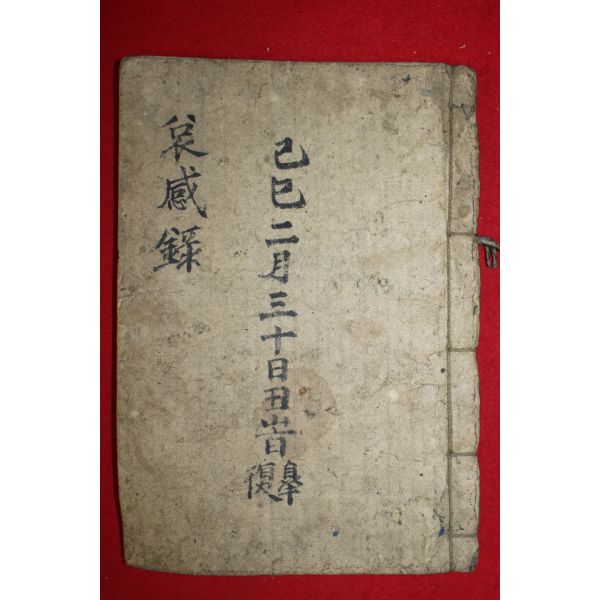 己巳二月三十日丑旹皐復
哀感錄